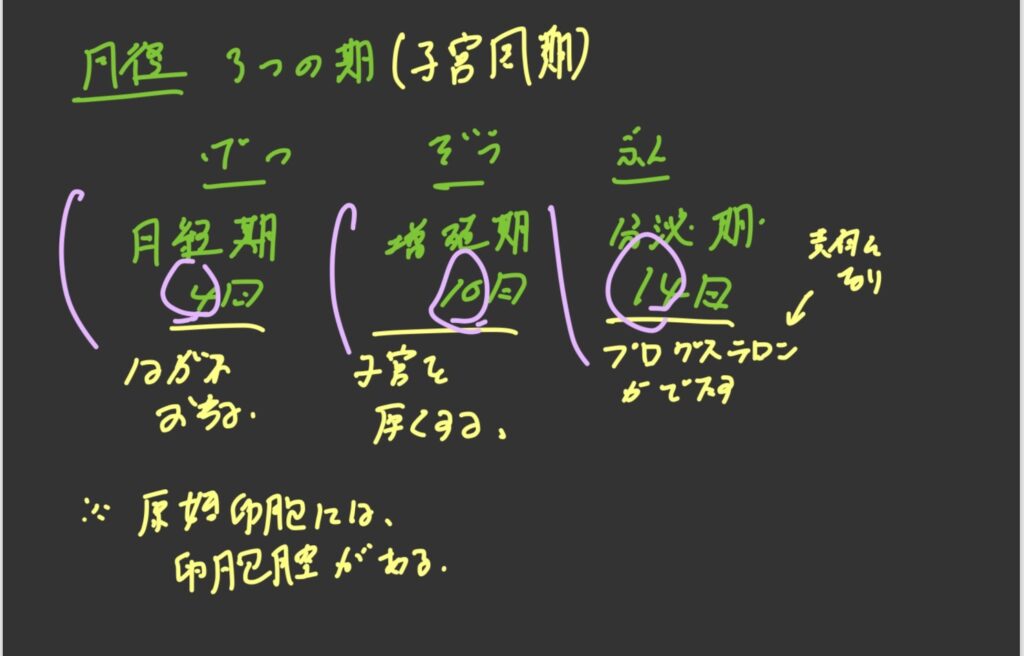 月経 3つの期(子宮周期)
げつ ぞう ぶん
月経期 増殖期 分泌期
4日 10日 14日
はがれ
おちる.
子宮を
厚くする、
プロゲステロン
がでてる
※ 原始卵胞には、
卵胞腔がある.